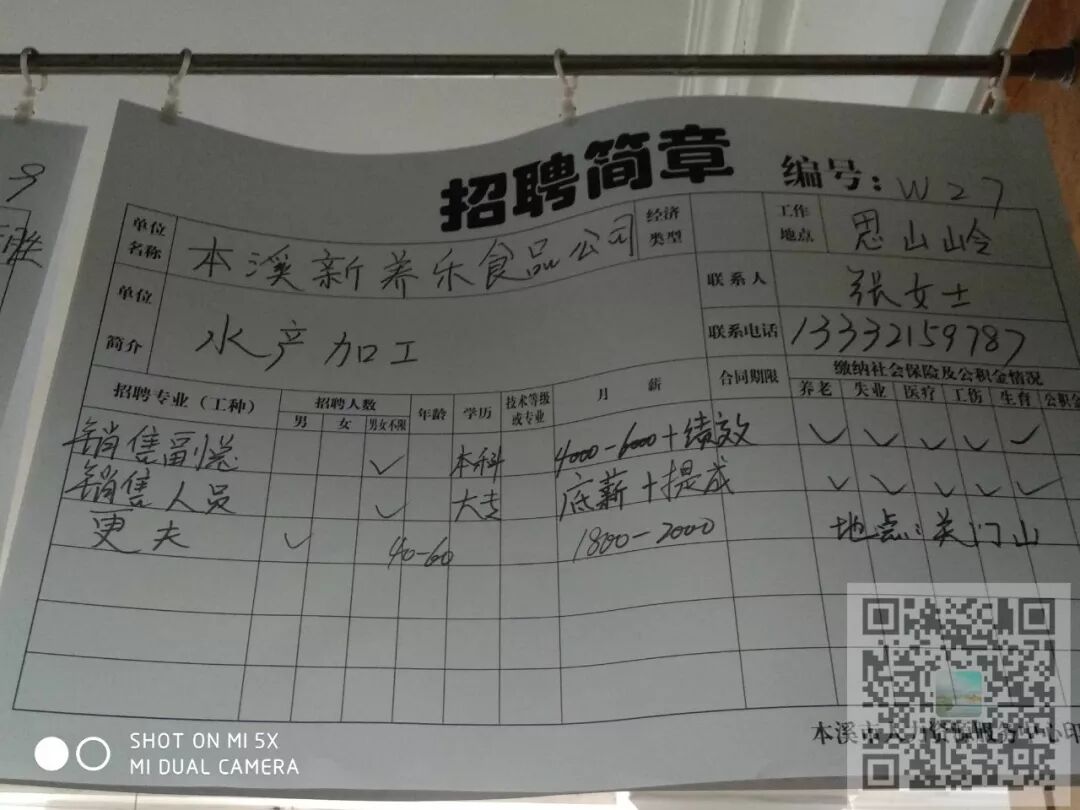 招聘简章
编号：W27
单位名称 本溪新养乐食品公司 经济类型 工作地点 思山岭
单位简介 水产加工 联系人 张女士
联系电话 13332159787
招聘专业（工种） 招聘人数 年龄 学历 技术等级或专业 月薪 合同期限 缴纳社会保险及公积金情况
男 女 男女不限 养老 失业 医疗 工伤 生育 公积金
销售副总 ✓ 本科 4000-6000+绩效 ✓ ✓ ✓ ✓ ✓
销售人员 ✓ 大专 底薪+提成 ✓ ✓ ✓ ✓ ✓
更夫 ✓ 40-60 1800-2000 地点：关门山
本溪市人力资源服务中心印
SHOT ON MI 5X
MI DUAL CAMERA